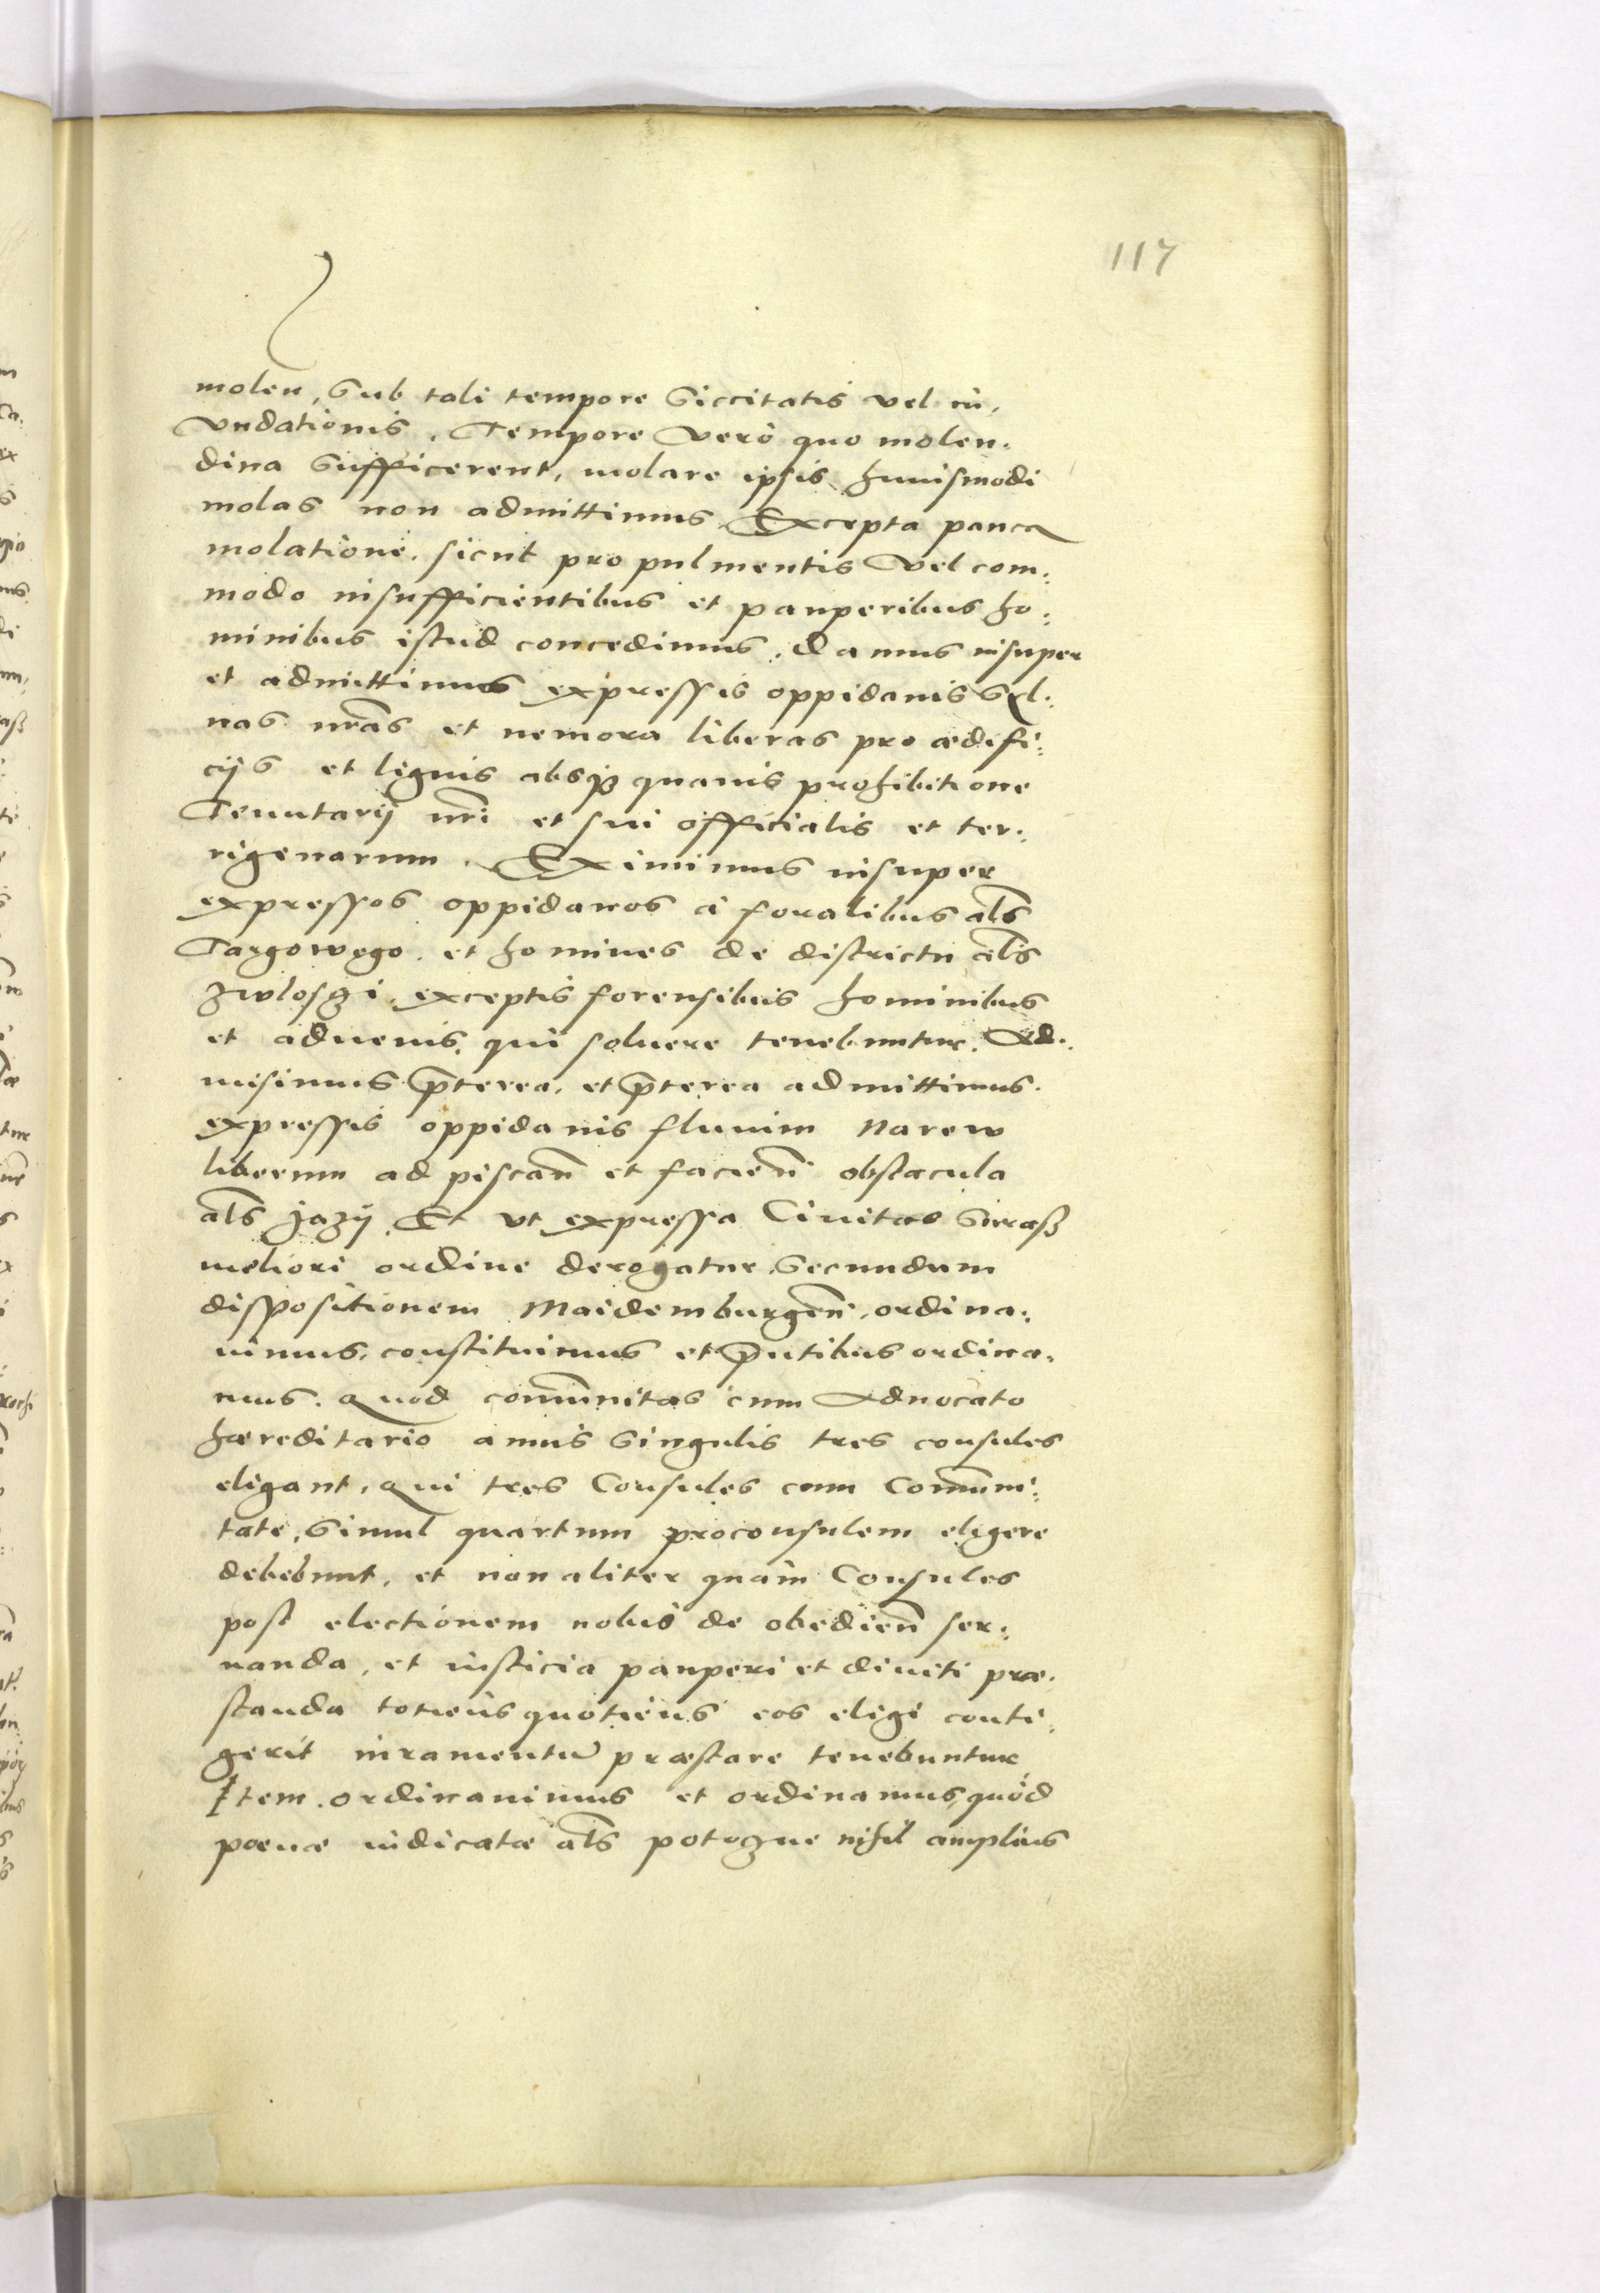 117
molen, Sub tali tempore Siccitatis vel in,
vndationis. Tempore vero quo molen.
dina Sufficerent, molare ipsis huiusmodi
molas non admittimus Excepta pauca
molatione. sicut pro pulmentis vel com:
modo insufficientibus et pauperibus ho:
minibus istud concedimus. Damus insuper
et admittimus expressis oppidanis Syl:
uas nrãs et nemora liberas pro ædifi:
cijs et lignis absq3 quauis prohibitione
Tenutarij nri et sui officialis et ter:
rigenarum. Eximimus insuper
expressos oppidanos à foralibus als
Targowego. et homines de districtu als
zwloszi. exceptis forensibus hominibus
et aduenis, qui soluere tenebuntur. Ad:
misimus p̃terea. et p̃terea admittimus.
expressis oppidanis fluuium Narew
liberum ad piscan̄ et facien̄ obstacula
als Jazij. Et vt expressa Ciuitas Surasz
meliori ordine derogatur. Secundum
dispositionem Maidemburgen̄. ordina:
uimus, constituimus et p̃ntibus ordina.
mus. Quod com̃unitas cum Aduocato
hæreditario annis Singulis tres consules
eligant. Qui tres Consules cum Com̃uni:
tate, Simul quartum proconsulem eligere
debebunt, et non aliter quàm Consules
post electionem nobis de obedien̄ ser:
uanda, et iusticia pauperi et diuiti præ.
standa totiens quotiens eos eligi conti:
gerit iuramentũ præstare tenebuntur
Item. ordinauimus et ordinamus, quòd
poenæ iudicatæ als potogzne nihil amplius